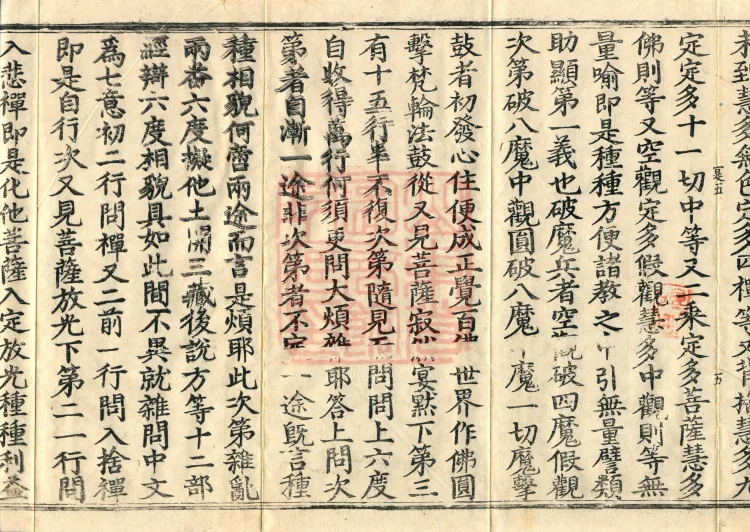 未到慧多無色定多四禪等又背捨慧多九
定定多十一切中等又二乘定多菩薩慧多
佛則等又空觀定多假觀慧多中觀則等無
量喻即是種種方便諸教之引無量譬類
助顯第一義也破魔兵者空破四魔假觀
次第破八魔中觀圓破八魔魔一切魔擊
鼓者初發心住便成正覺百佛世界作佛圓
擊梵輪法鼓從又見菩薩寂然宴默下第三
有十五行半不復次第隨見問問上六度
自收得萬行須更問大煩雜耶答上問次
第者自漸一途非次第者不定一途旣言種
種相貌何啻兩途而言是煩耶此次第雜亂
兩番六度擬他土開三藏後說方等十二部
經辯六度相貌具如此間不異就雜問中文
爲七意初二行問禪又二前一行問入捨禪
即是自行次又見菩薩放光下第二一行問
入悲禪即是化他菩薩入定放光種種利益
是五
五